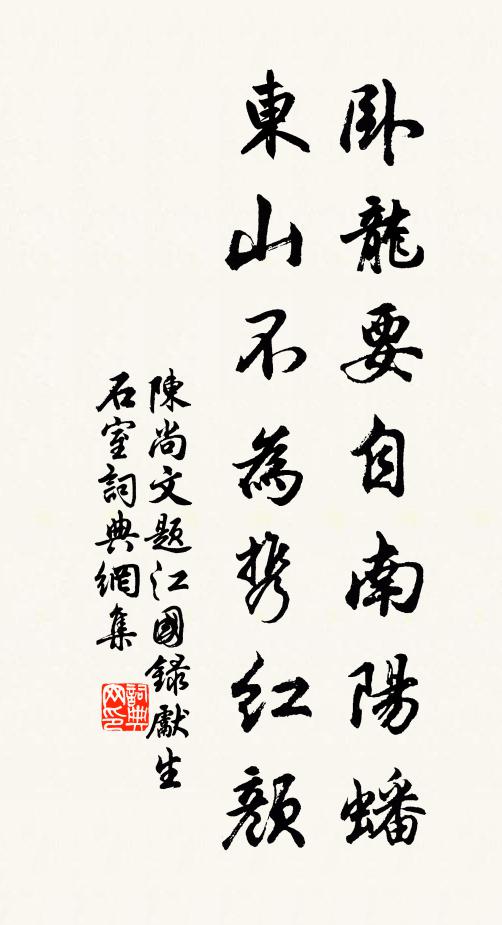 臥龍要自南陽蟠
東山不為携紅顏
陳尚文題江國錄獻生
石室詞典網集
詞典網印